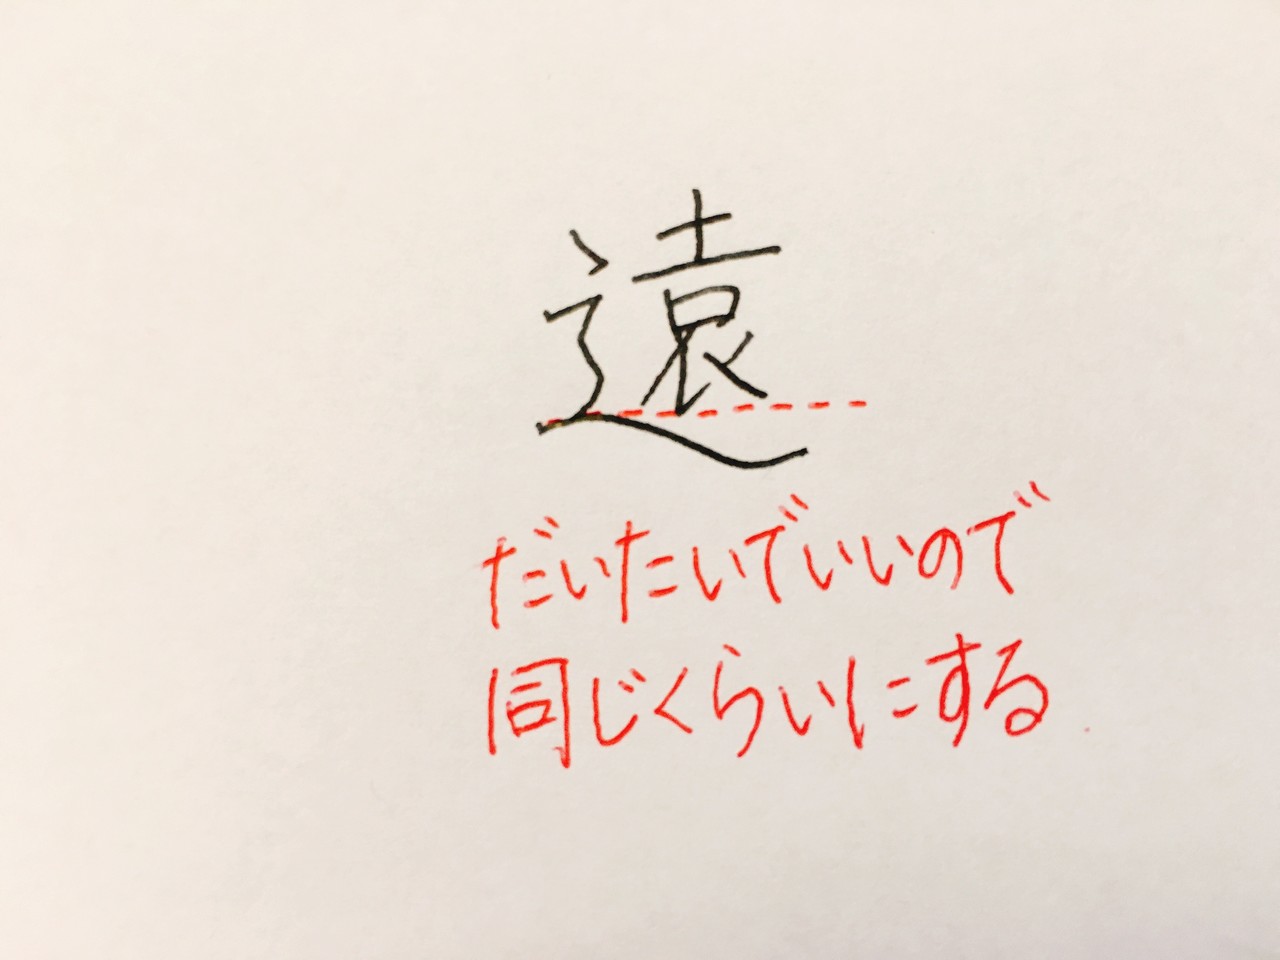 遠
だいたいでいいので
同じくらいにする